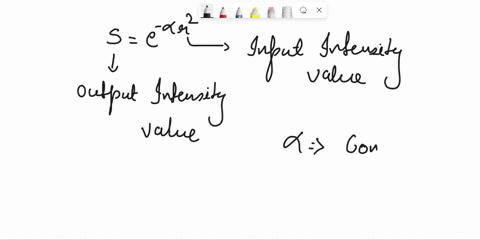 S = e^{-αr²} → Input Intensity value
↓
Output Intensity value
α ⇒ Con